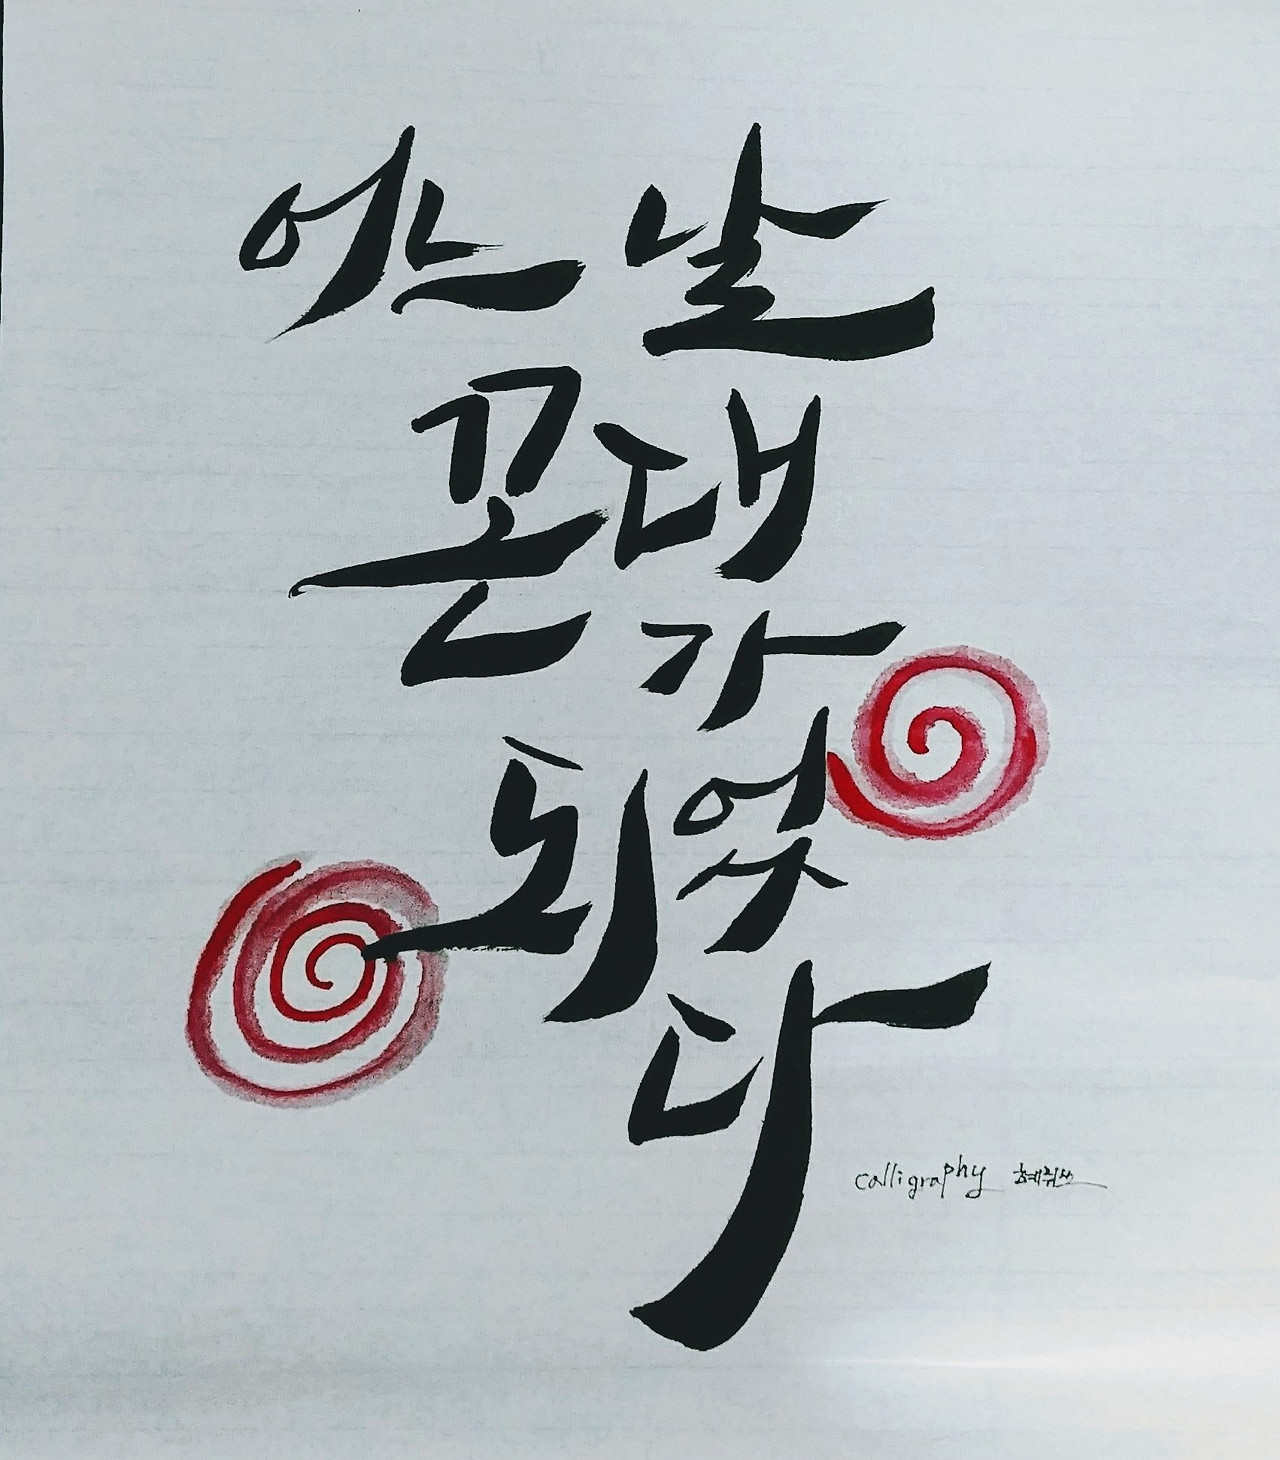 어느 날
꼰대
가
되었
다
calligraphy 혜쥐쓰